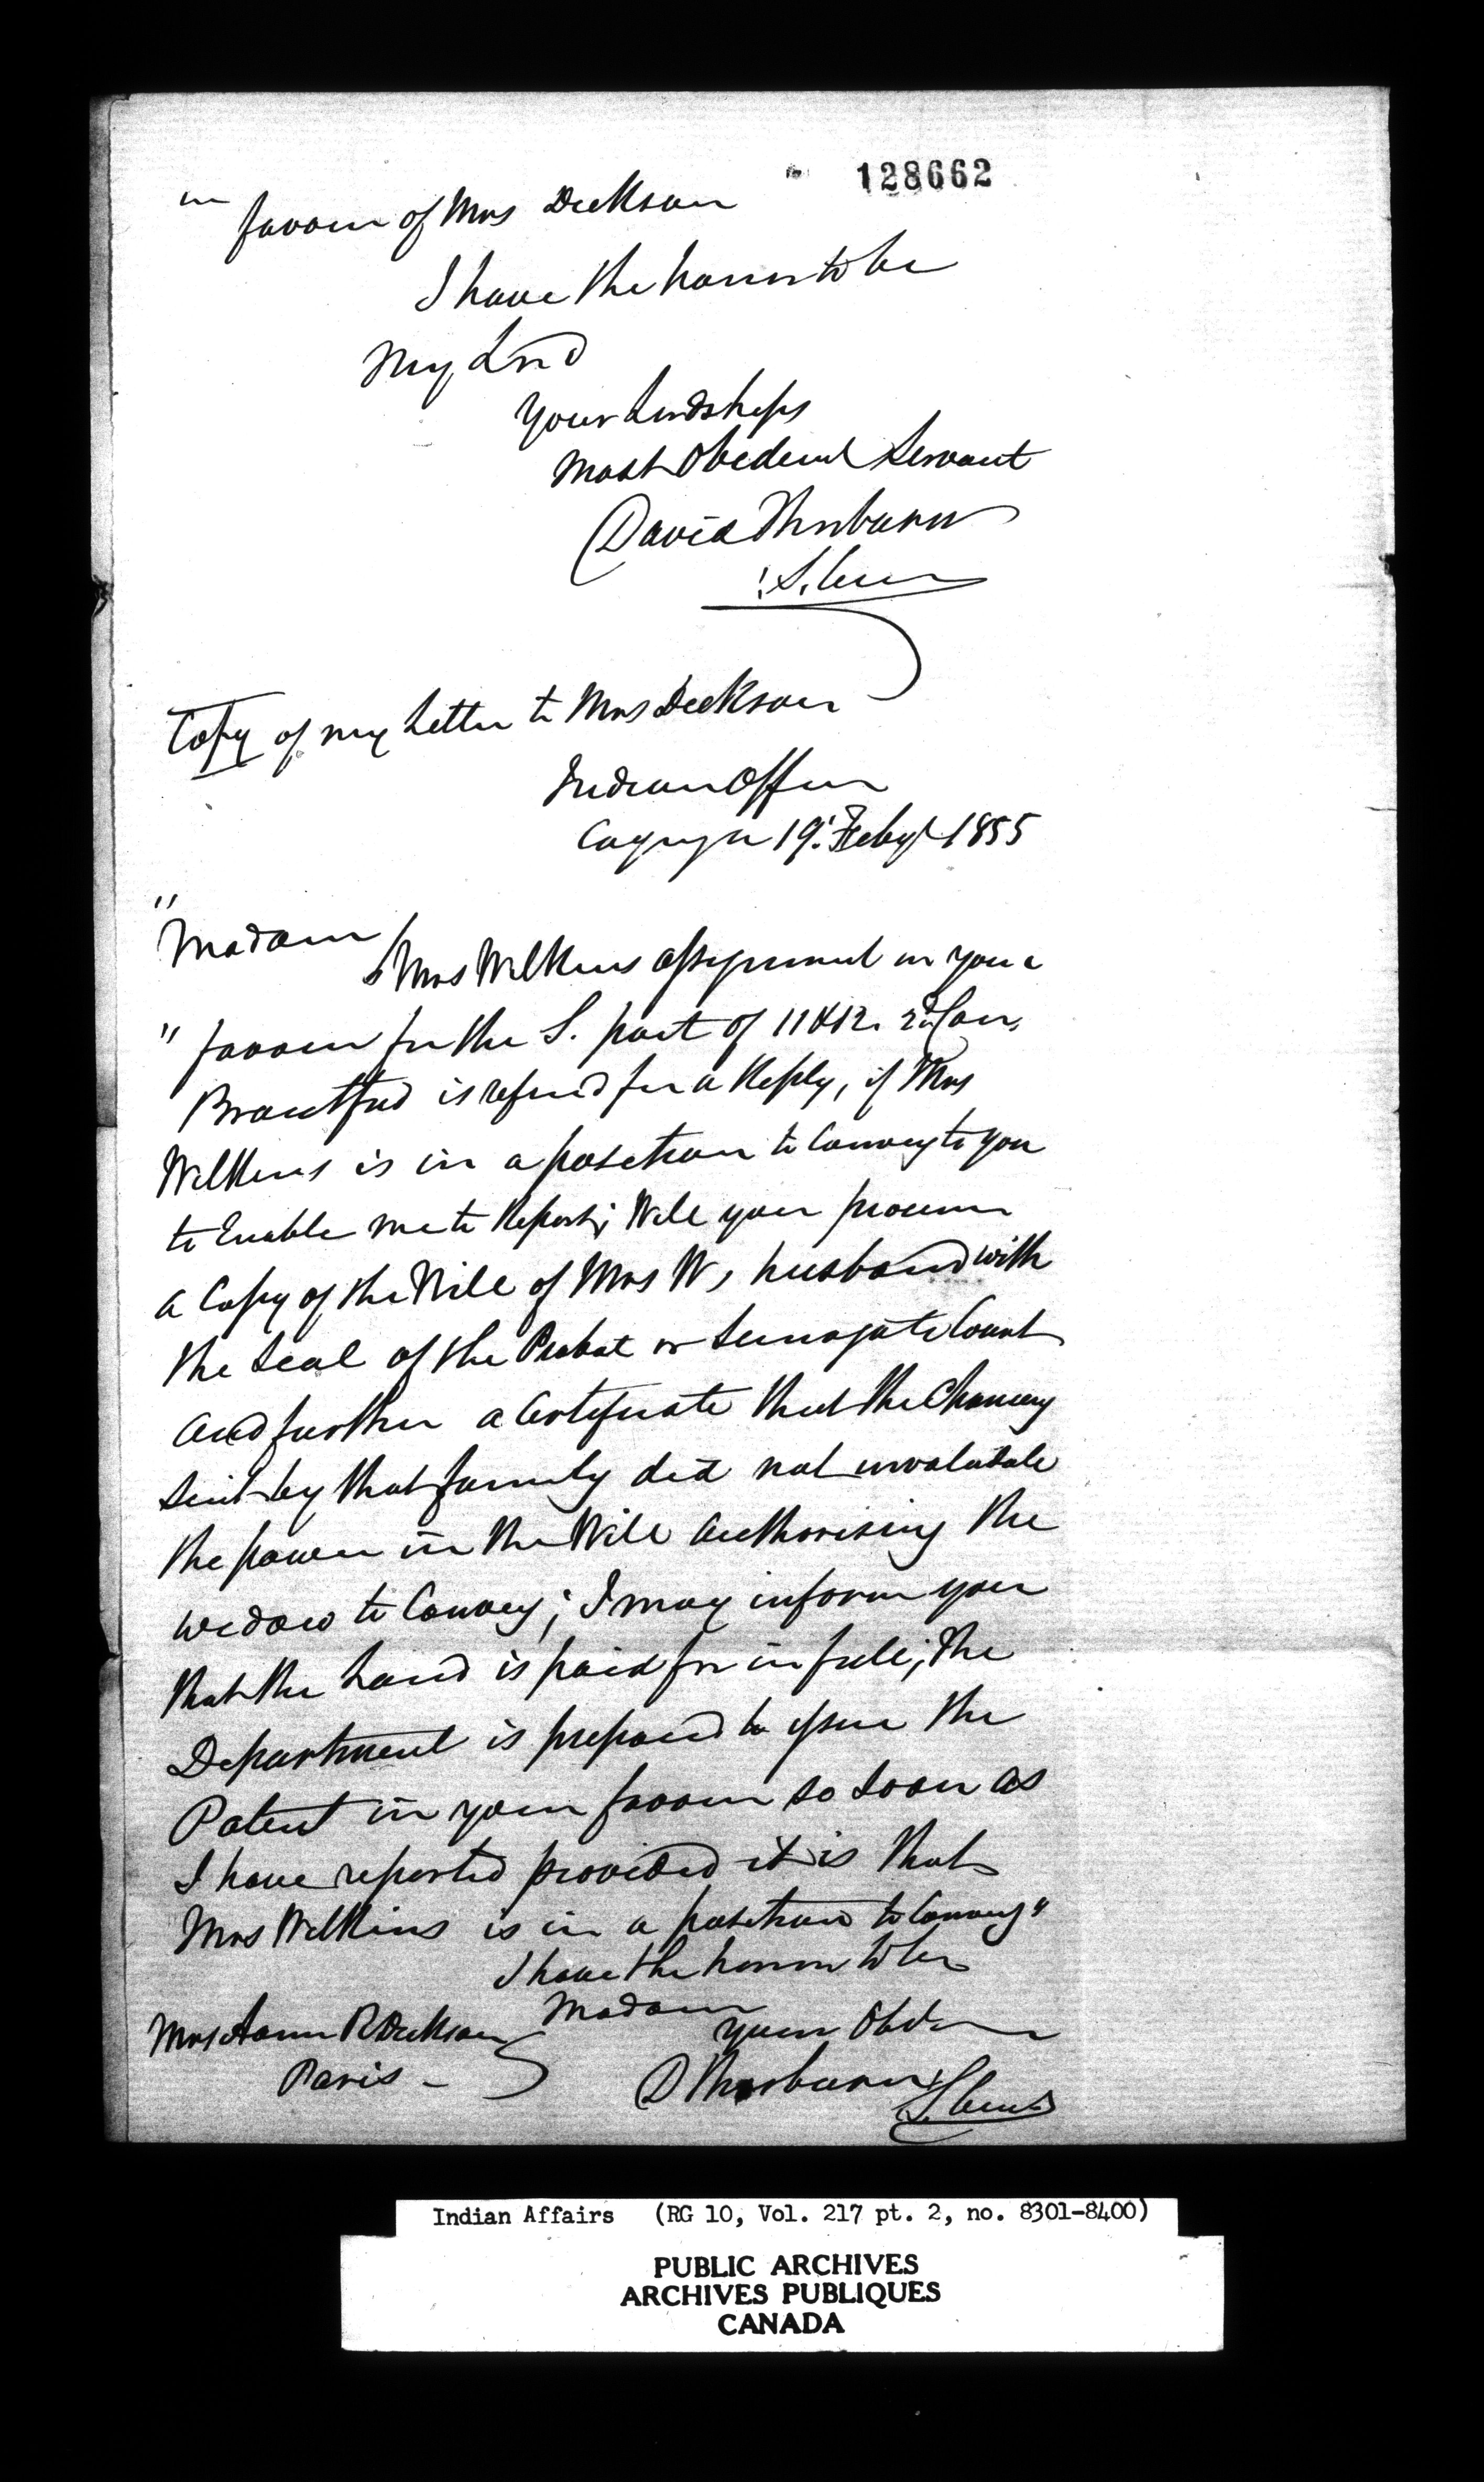 128662
in favour of Mrs Dickson
I have the honor to be
My Lord
Your Lordships
Most Obedient Servant
David Thorburn
Copy of my Letter to Mrs Dickson
Indian Office
Cayuga 19: Feby 1855
"
Madam
Mrs Wilkins assignment in your
" favour for the S. part of 11 & 12. 2d Con.
Brantford is referred for a Reply, if Mrs
Wilkins is in a position to Convey to you
to Enable me to Report; Will you procure
a Copy of the Will of Mrs W, husband with
the Seal of the Probat or Surrogate Court
and further a Certificate that the Chancery
Suit by that family did not invalidate
the power in the Will authorising the
widow to Convey; I may inform you
that the Land is paid for in full, the
Department is prepared to issue the
Patent in your favour so soon as
I have reported provided it is that
Mrs Wilkins is in a position to Convey"
I have the honor to be
Madam
your Obdt
Mrs Ann R Dickson
Paris -
D Thorburn
Indian Affairs (RG 10, Vol. 217 pt. 2, no. 8301-8400)
PUBLIC ARCHIVES
ARCHIVES PUBLIQUES
CANADA